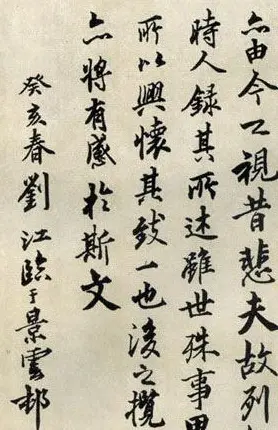 亦由今之視昔悲夫故列
時人錄其所述雖世殊事異
所以興懷其致一也後之攬
亦將有感於斯文
癸亥春劉江臨于景雲邨